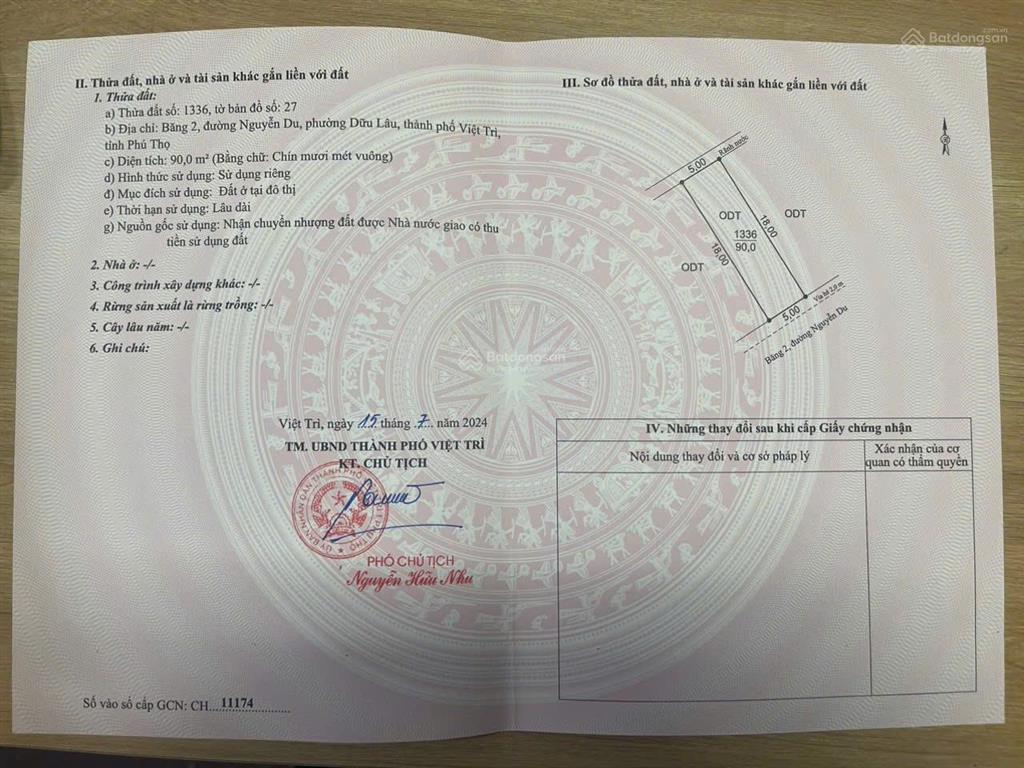 Batdongsan
.com.vn
II. Thửa đất, nhà ở và tài sản khác gắn liền với đất
1. Thửa đất:
a) Thửa đất số: 1336, tờ bản đồ số: 27
b) Địa chỉ: Băng 2, đường Nguyễn Du, phường Dữu Lâu, thành phố Việt Trì,
tỉnh Phú Thọ
c) Diện tích: 90,0 m² (Bằng chữ: Chín mươi mét vuông)
d) Hình thức sử dụng: Sử dụng riêng
đ) Mục đích sử dụng: Đất ở tại đô thị
e) Thời hạn sử dụng: Lâu dài
g) Nguồn gốc sử dụng: Nhận chuyển nhượng đất được Nhà nước giao có thu
tiền sử dụng đất
2. Nhà ở: -/-
3. Công trình xây dựng khác: -/-
4. Rừng sản xuất là rừng trồng: -/-
5. Cây lâu năm: -/-
6. Ghi chú:
Việt Trì, ngày 15 tháng 7 năm 2024
TM. UBND THÀNH PHỐ VIỆT TRÌ
KT. CHỦ TỊCH
PHÓ CHỦ TỊCH
Nguyễn Hữu Nhu
Số vào sổ cấp GCN: CH 11174
III. Sơ đồ thửa đất, nhà ở và tài sản khác gắn liền với đất
Rãnh nước
5,00
ODT
ODT
18,00
1336
90,0
18,00
ODT
5,00
Vỉa hè 2,0 m
Băng 2, đường Nguyễn Du
Batdongsan
IV. Những thay đổi sau khi cấp Giấy chứng nhận
Nội dung thay đổi và cơ sở pháp lý
Xác nhận của cơ
quan có thẩm quyền